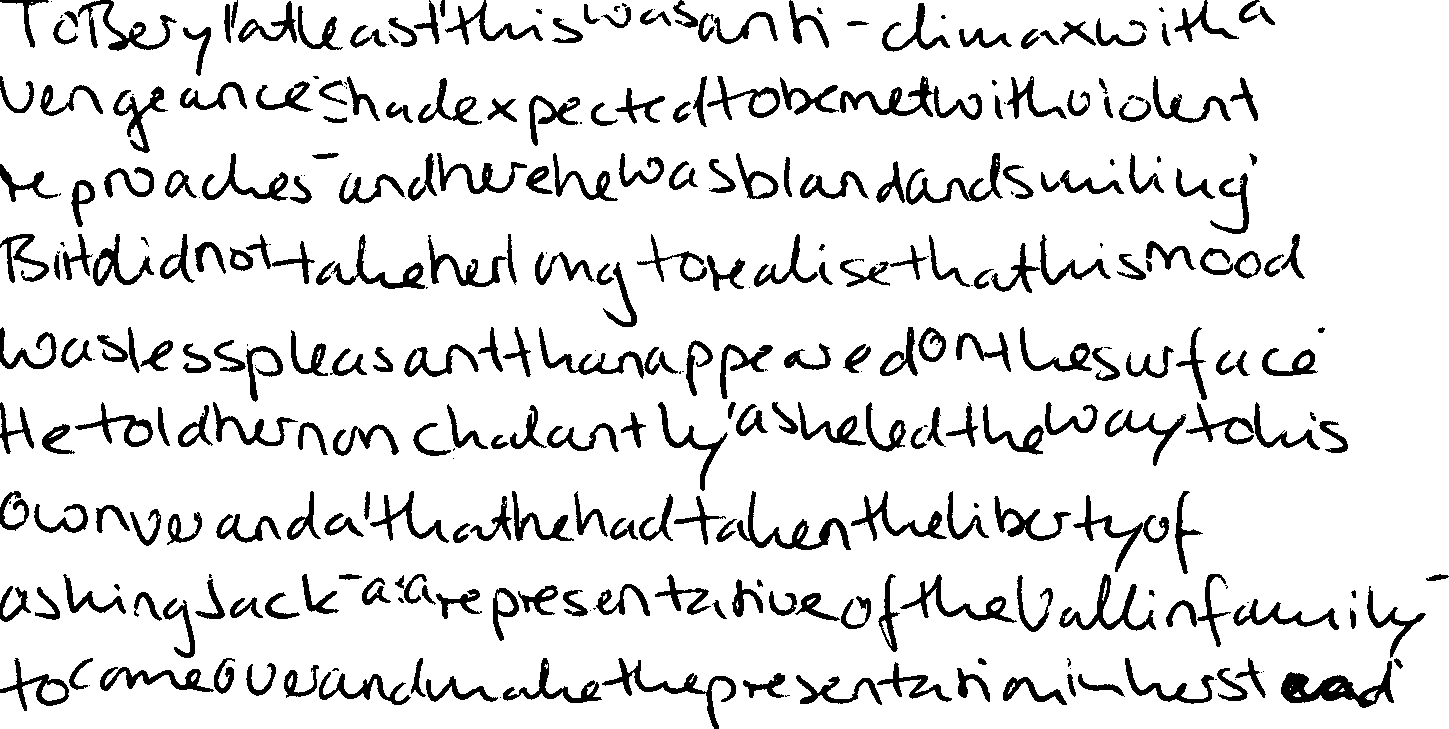 To Beryl, at least, this was anti-climax with a
vengeance. She had expected to be met with violent
reproaches - and here he was bland and smiling.
But it did not take her long to realise that this mood
was less pleasant than appeared on the surface.
He told her nonchalantly, as he led the way to his
own veranda, that he had taken the liberty of
asking Jack - as a representative of the Vallin family -
to come over and make the presentation in her stead.